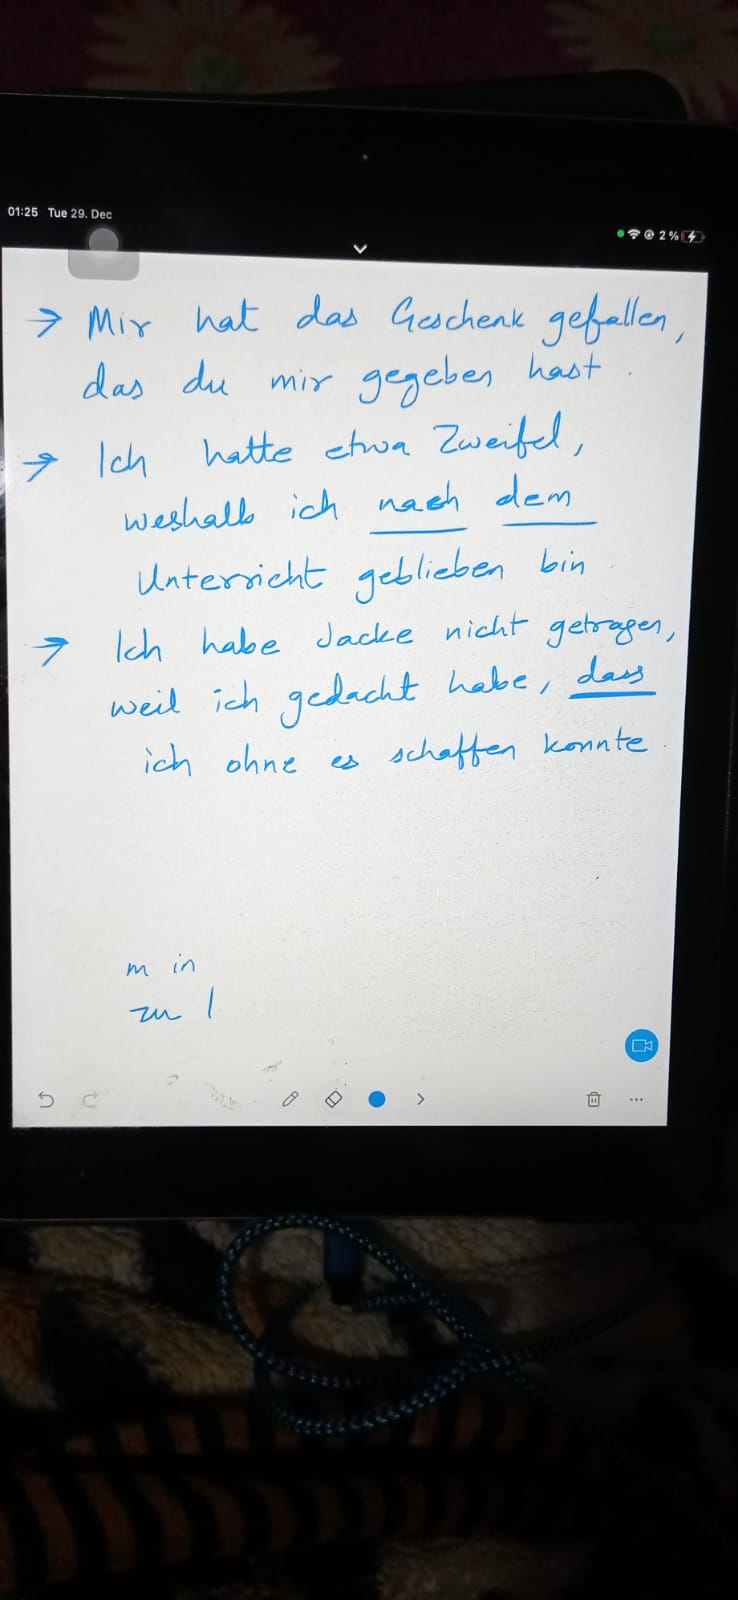 01:25 Tue 29. Dec
2%
→ Mir hat das Geschenk gefallen,
das du mir gegeben hast.
→ Ich hatte etwa Zweifel,
weshalb ich nach dem
Unterricht geblieben bin
→ Ich habe Jacke nicht getragen,
weil ich gedacht habe, dass
ich ohne es schaffen konnte.
m in
zu l